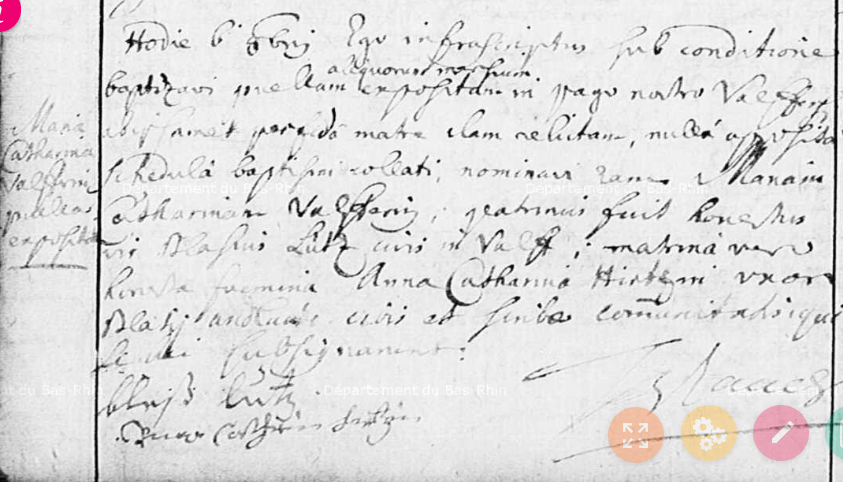 Maria
Catharina
Valfferin
puella
exposita
Hodie 6 8bris Ego infrascriptus sub conditione
baptizavi puellam expositam in pago nostro Valff
aliquorum mensium
perfida matre clam relictam, nulla apposita
schedula baptismi collati, nominavi eam Mariam
Catharinam Valfferin, patrinus fuit honestus
vir Blasius Lutz civis in Valff; matrina vero
honesta foemina Anna Catharina Hirtzin uxor
Blasij civis et scribae communitatis qui
subsignarunt.
bleiß Lutz
Anna
Département du Bas-Rhin
Département du Bas-Rhin
nt du Bas-Rhin
Département du Bas-Rhin